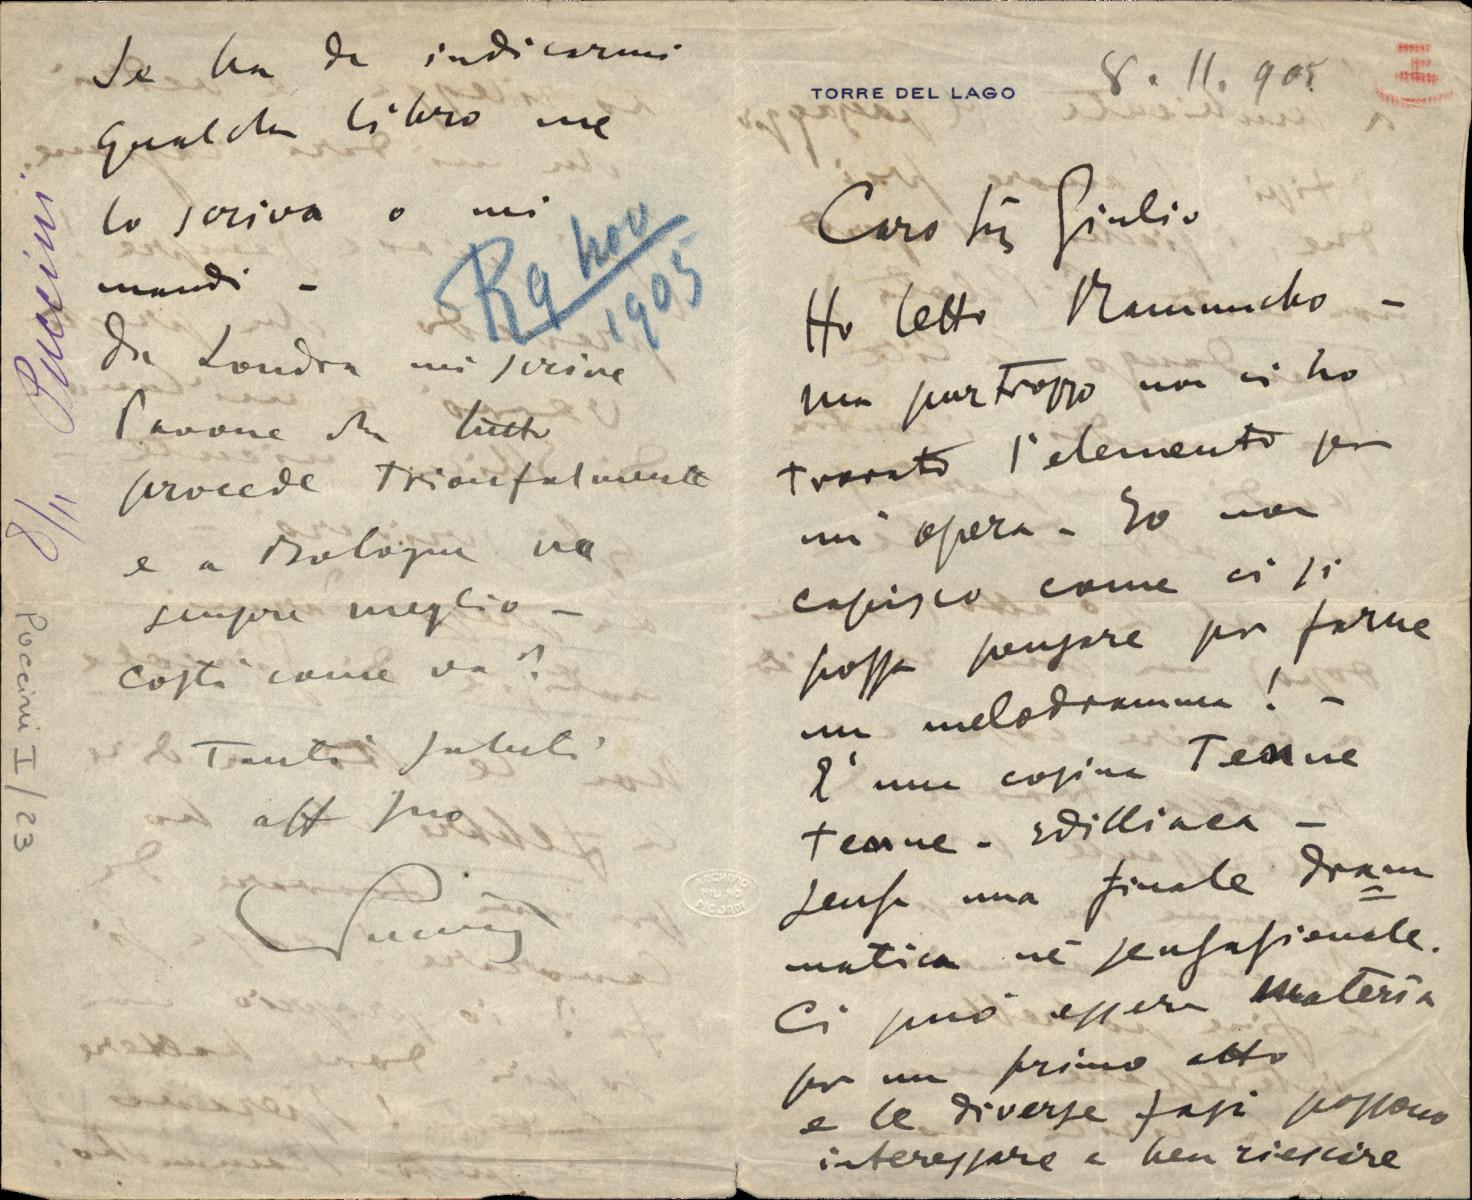 Se ha da indicarmi
qualche libro me
lo scriva o mi
mandi -
Da Londra mi scrive
Pavone che tutto
procede trionfalmente
e a Bologna va
sempre meglio -
costì come va?
Tanti saluti
aff suo
Puccini
Rg nov
1905
8/11 - Puccini
Puccini I/23
ARCHIVIO
RICORDI
TORRE DEL LAGO
8. 11. 905
Caro Sig Giulio
Ho letto Ramuncho -
ma purtroppo non ci ho
trovato l'elemento per
un' opera - Io non
capisco come ci si
possa pensare per farne
un melodramma! -
È una cosina tenue
tenue - idilliaca -
senza una finale dram
matica nè sensazionale.
Ci può essere materia
per un primo atto
e le diverse fasi possono
interessare e ben riescire